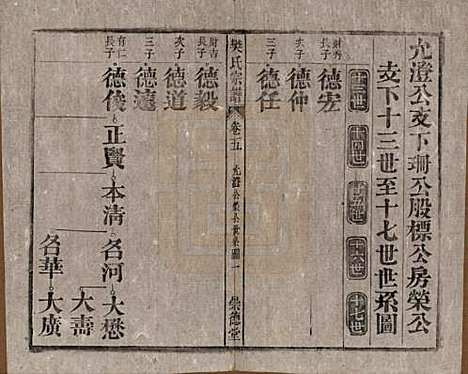 允澄公支下珊公股標公房榮公
支下十三世至十七世世系圖
十三世 十四世 十五世 十六世 十七世
財秀長子 德宏
次子 德仲
三子 德任
樊氏宗譜 卷五 崇德堂
財吉長子 德毅
次子 德道
三子 德遠
有仁長子 德俊 正賢 本清 名河 大懋
大壽
名華 大廣